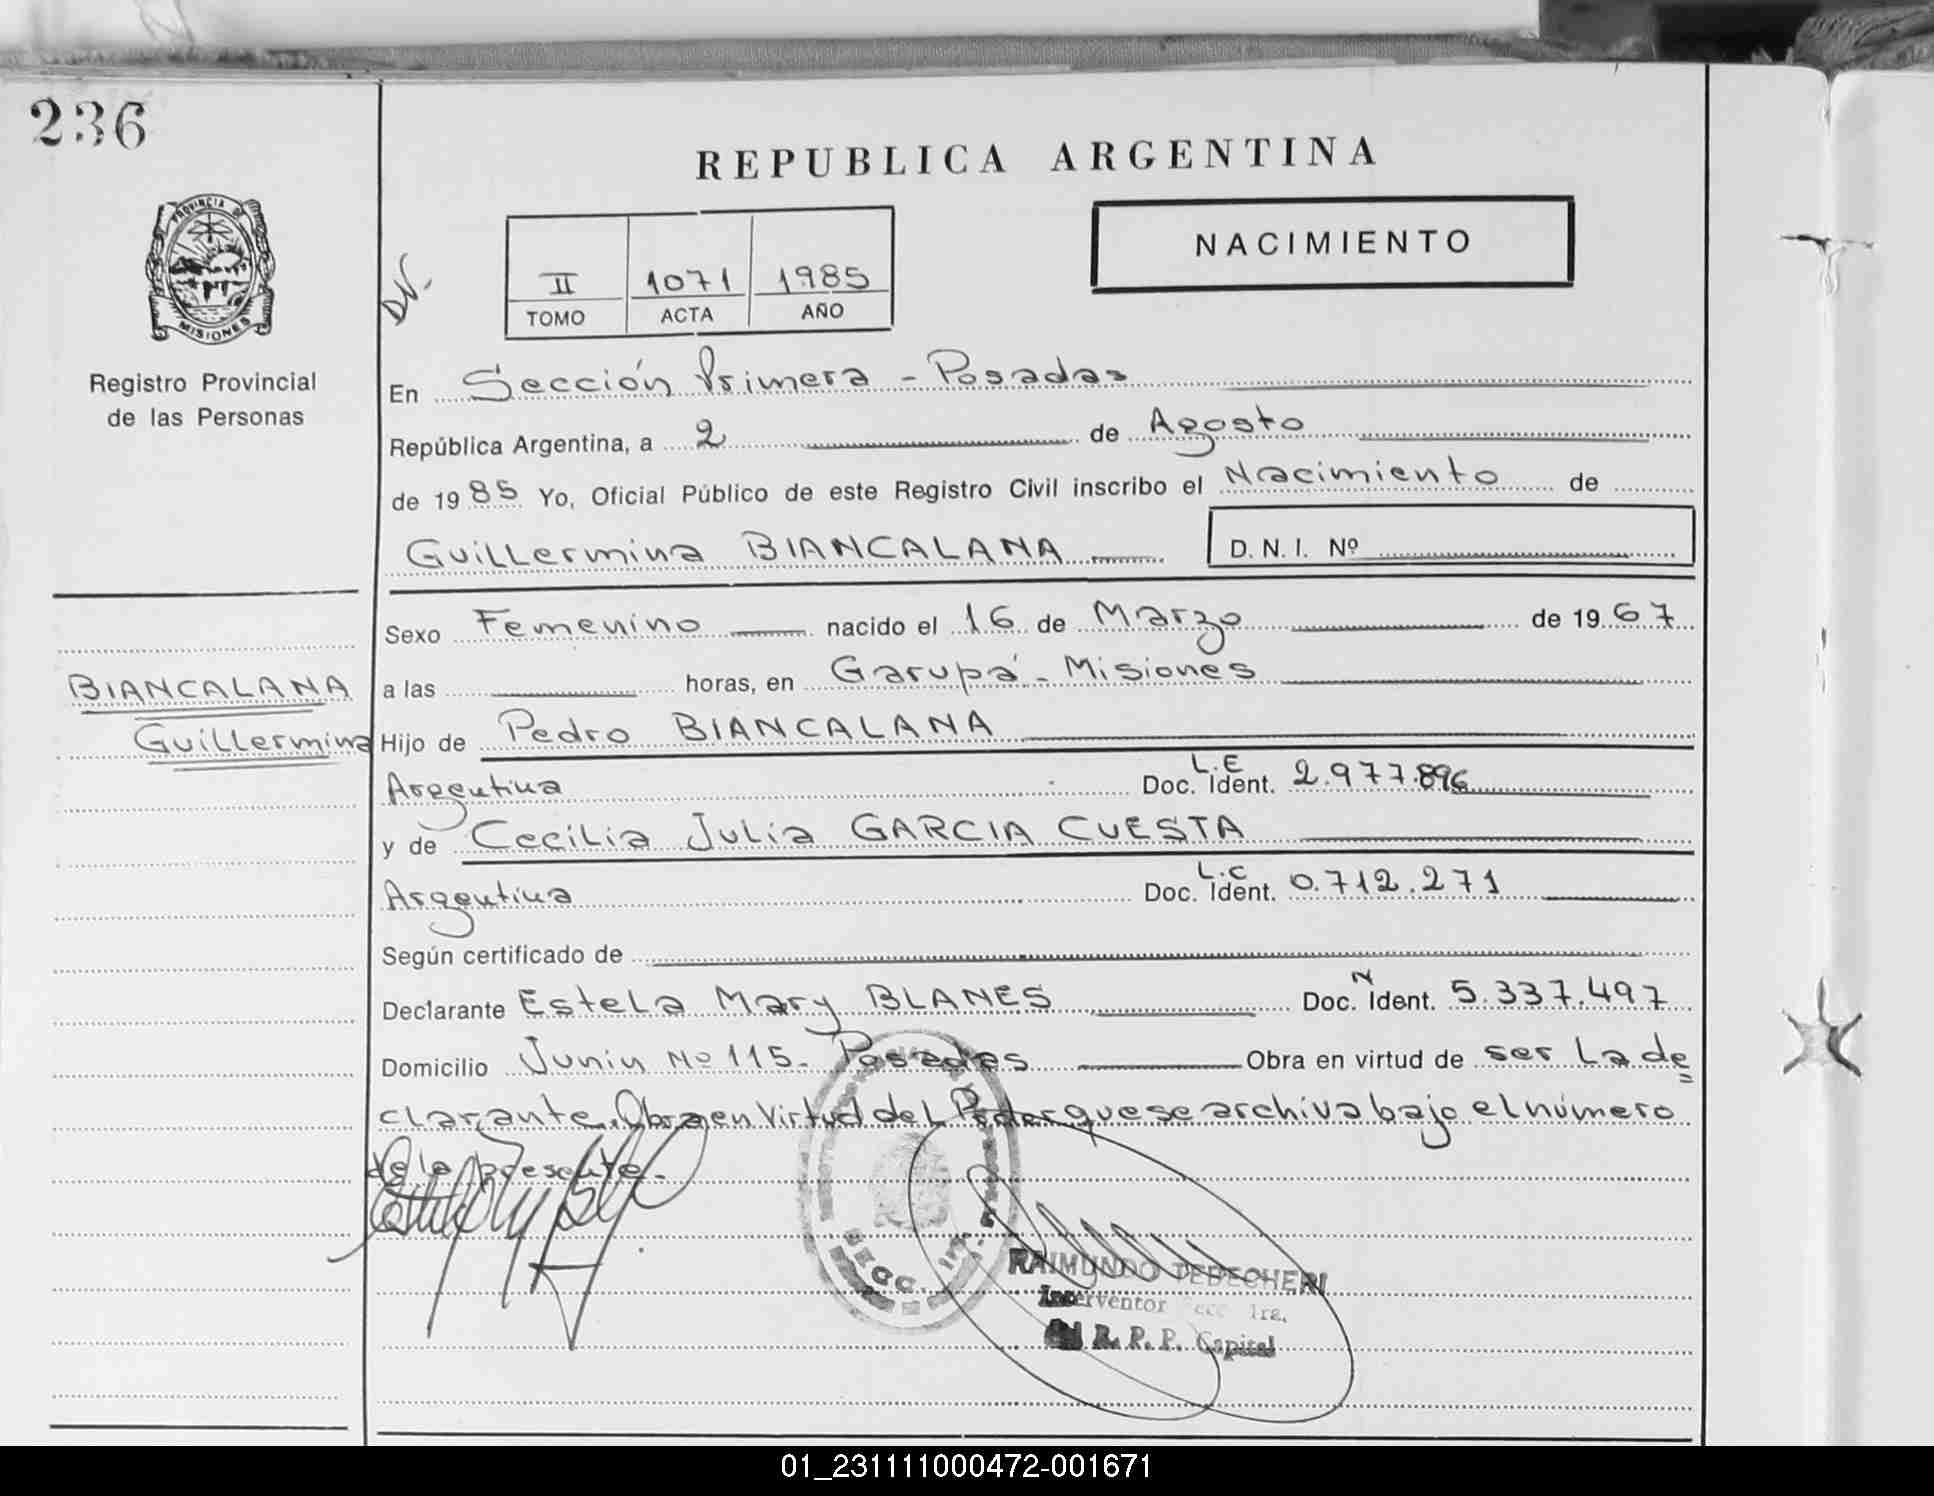 236
REPUBLICA ARGENTINA
PROVINCIA DE
MISIONES
Registro Provincial
de las Personas
NACIMIENTO
II 1071 1985
TOMO ACTA AÑO
En Sección Primera - Posadas
República Argentina, a 2 de Agosto
de 1985 Yo, Oficial Público de este Registro Civil inscribo el Nacimiento de
Guillermina BIANCALANA D. N. I. Nº
Sexo Femenino nacido el 16 de Marzo de 1967
BIANCALANA
Guillermina
a las horas, en Garupá - Misiones
Hijo de Pedro BIANCALANA
Argentina Doc. Ident. L.E 2.977.896
y de Cecilia Julia GARCIA CUESTA
Argentina Doc. Ident. L.C 0.712.271
Según certificado de
Declarante Estela Mary BLANES Doc. Ident. N 5.337.497
Domicilio Junin Nº 115- Posadas Obra en virtud de ser la de
clarante. Obra en Virtud del Poder que se archiva bajo el número
de la presente.-
SECC. 1ra.
RAIMUNDO TEDECHERI
Interventor Secc 1ra.
R. P. P. Capital
01_231111000472-001671